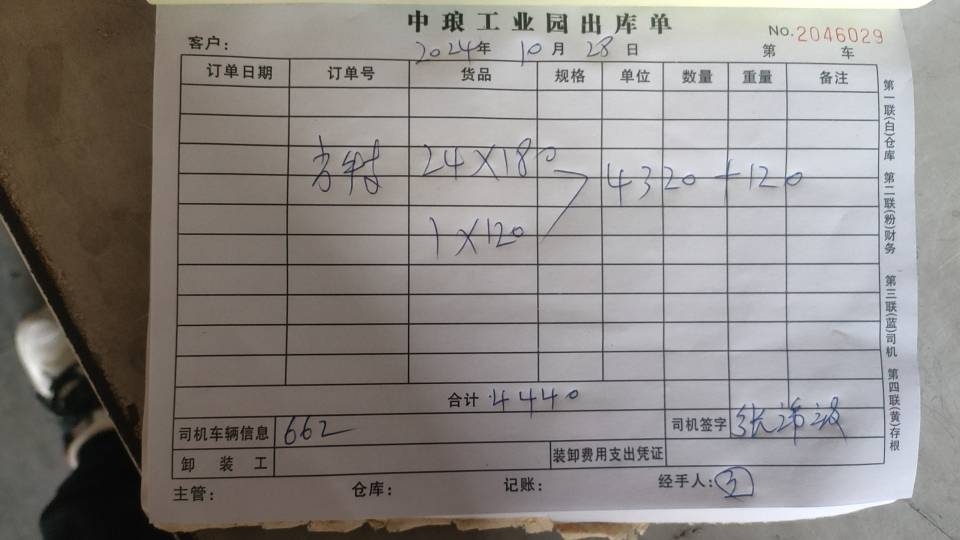 中琅工业园出库单
No. 2046029
客户: 2024年 10月 28日 第 车
订单日期 订单号 货品 规格 单位 数量 重量 备注
24×180 4320+120
1×120
合计 4440
司机车辆信息 662 司机签字 张
卸装工 装卸费用支出凭证
主管: 仓库: 记账: 经手人:
第一联(白)仓库 第二联(粉)财务 第三联(蓝)司机 第四联(黄)存根